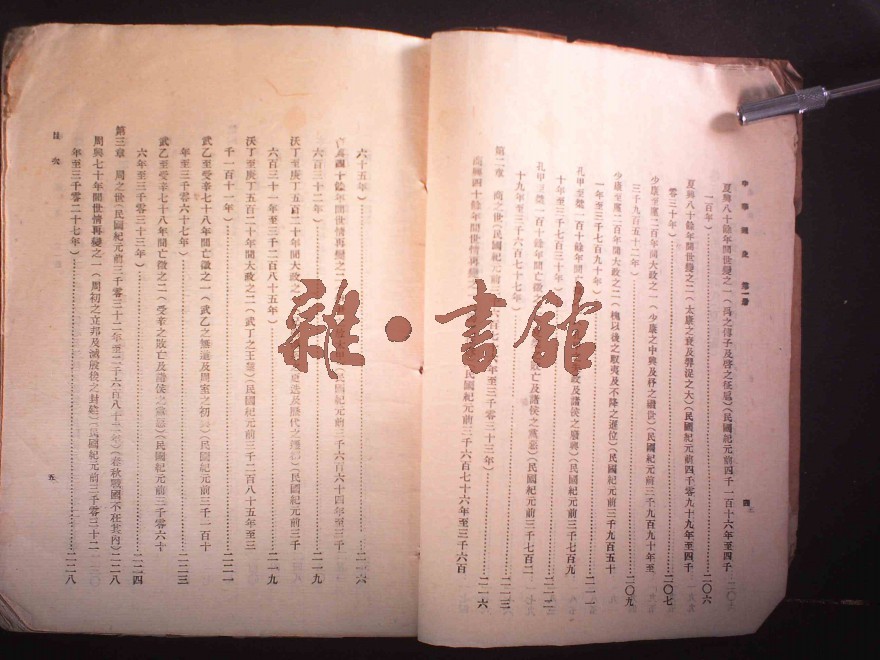 中華通史 第一冊
四
夏興八十餘年間世變之一(禹之傳子及啓之征扈)(民國紀元前四千一百十六年至四千
一百年)⋯⋯二〇六
夏興八十餘年間世變之二(太康之衰及羿浞之大)(民國紀元前四千零九十九年至四千
零三十年)⋯⋯二〇七
少康至廑二百年間大政之一(少康之中興及杼之繼世)(民國紀元前三千九百九十年至
三千九百五十二年)⋯⋯二〇九
少康至廑二百年間大政之二(槐以後之馭夷及不降之遜位)(民國紀元前三千九百五十
一年至三千七百九十年)⋯⋯二一一
孔甲至桀一百十餘年間亡 政及諸侯之廢興)(民國紀元前三千七百九
十年至三千七百三十年)⋯⋯二一二
孔甲至桀一百十餘年間亡徵 敗亡及諸侯之黨惡)(民國紀元前三千七百二
十九年至三千六百七十七年)⋯⋯二一三
第二章 商之世(民國紀元前三千六百七 年至三千零三十三年)⋯⋯二一六
商興四十餘年間世情再變之 民國紀元前三千六百七十六年至三千六百
六十五年)⋯⋯二一六
商興四十餘年間世情再變之二 (民國紀元前三千六百六十四年至三千
六百三十二年)⋯⋯二一九
沃丁至庚丁五百二十年間大政之 遷及歷代之 (民國紀元前三千
六百三十一年至三千二百八十五年)⋯⋯二一九
沃丁至庚丁五百二十年間大政之二(武丁之王業)(民國紀元前三千二百八十五年至三
千一百十一年)⋯⋯二二一
武乙至受辛七十八年間亡徵之一(武乙之無道及周室之初興)(民國紀元前三千一百十
年至三千零六十七年)⋯⋯二二三
武乙至受辛七十八年間亡徵之二(受辛之敗亡及諸侯之黨惡)(民國紀元前三千零六十
六年至三千零三十三年)⋯⋯二二四
第三章 周之世(民國紀元前三千零三十二年至二千六百八十二年)(春秋戰國不在其內)二二八
周興七十年間世情再變之一(周初之立邦及滅殷後之封建)(民國紀元前三千零三十二
年至三千零二十七年)⋯⋯二二八
目次
五
雜·書館